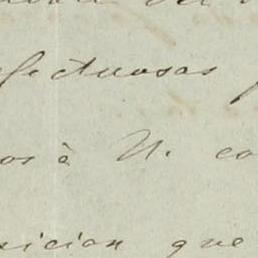 fectuosas
os à N. co
sicion que